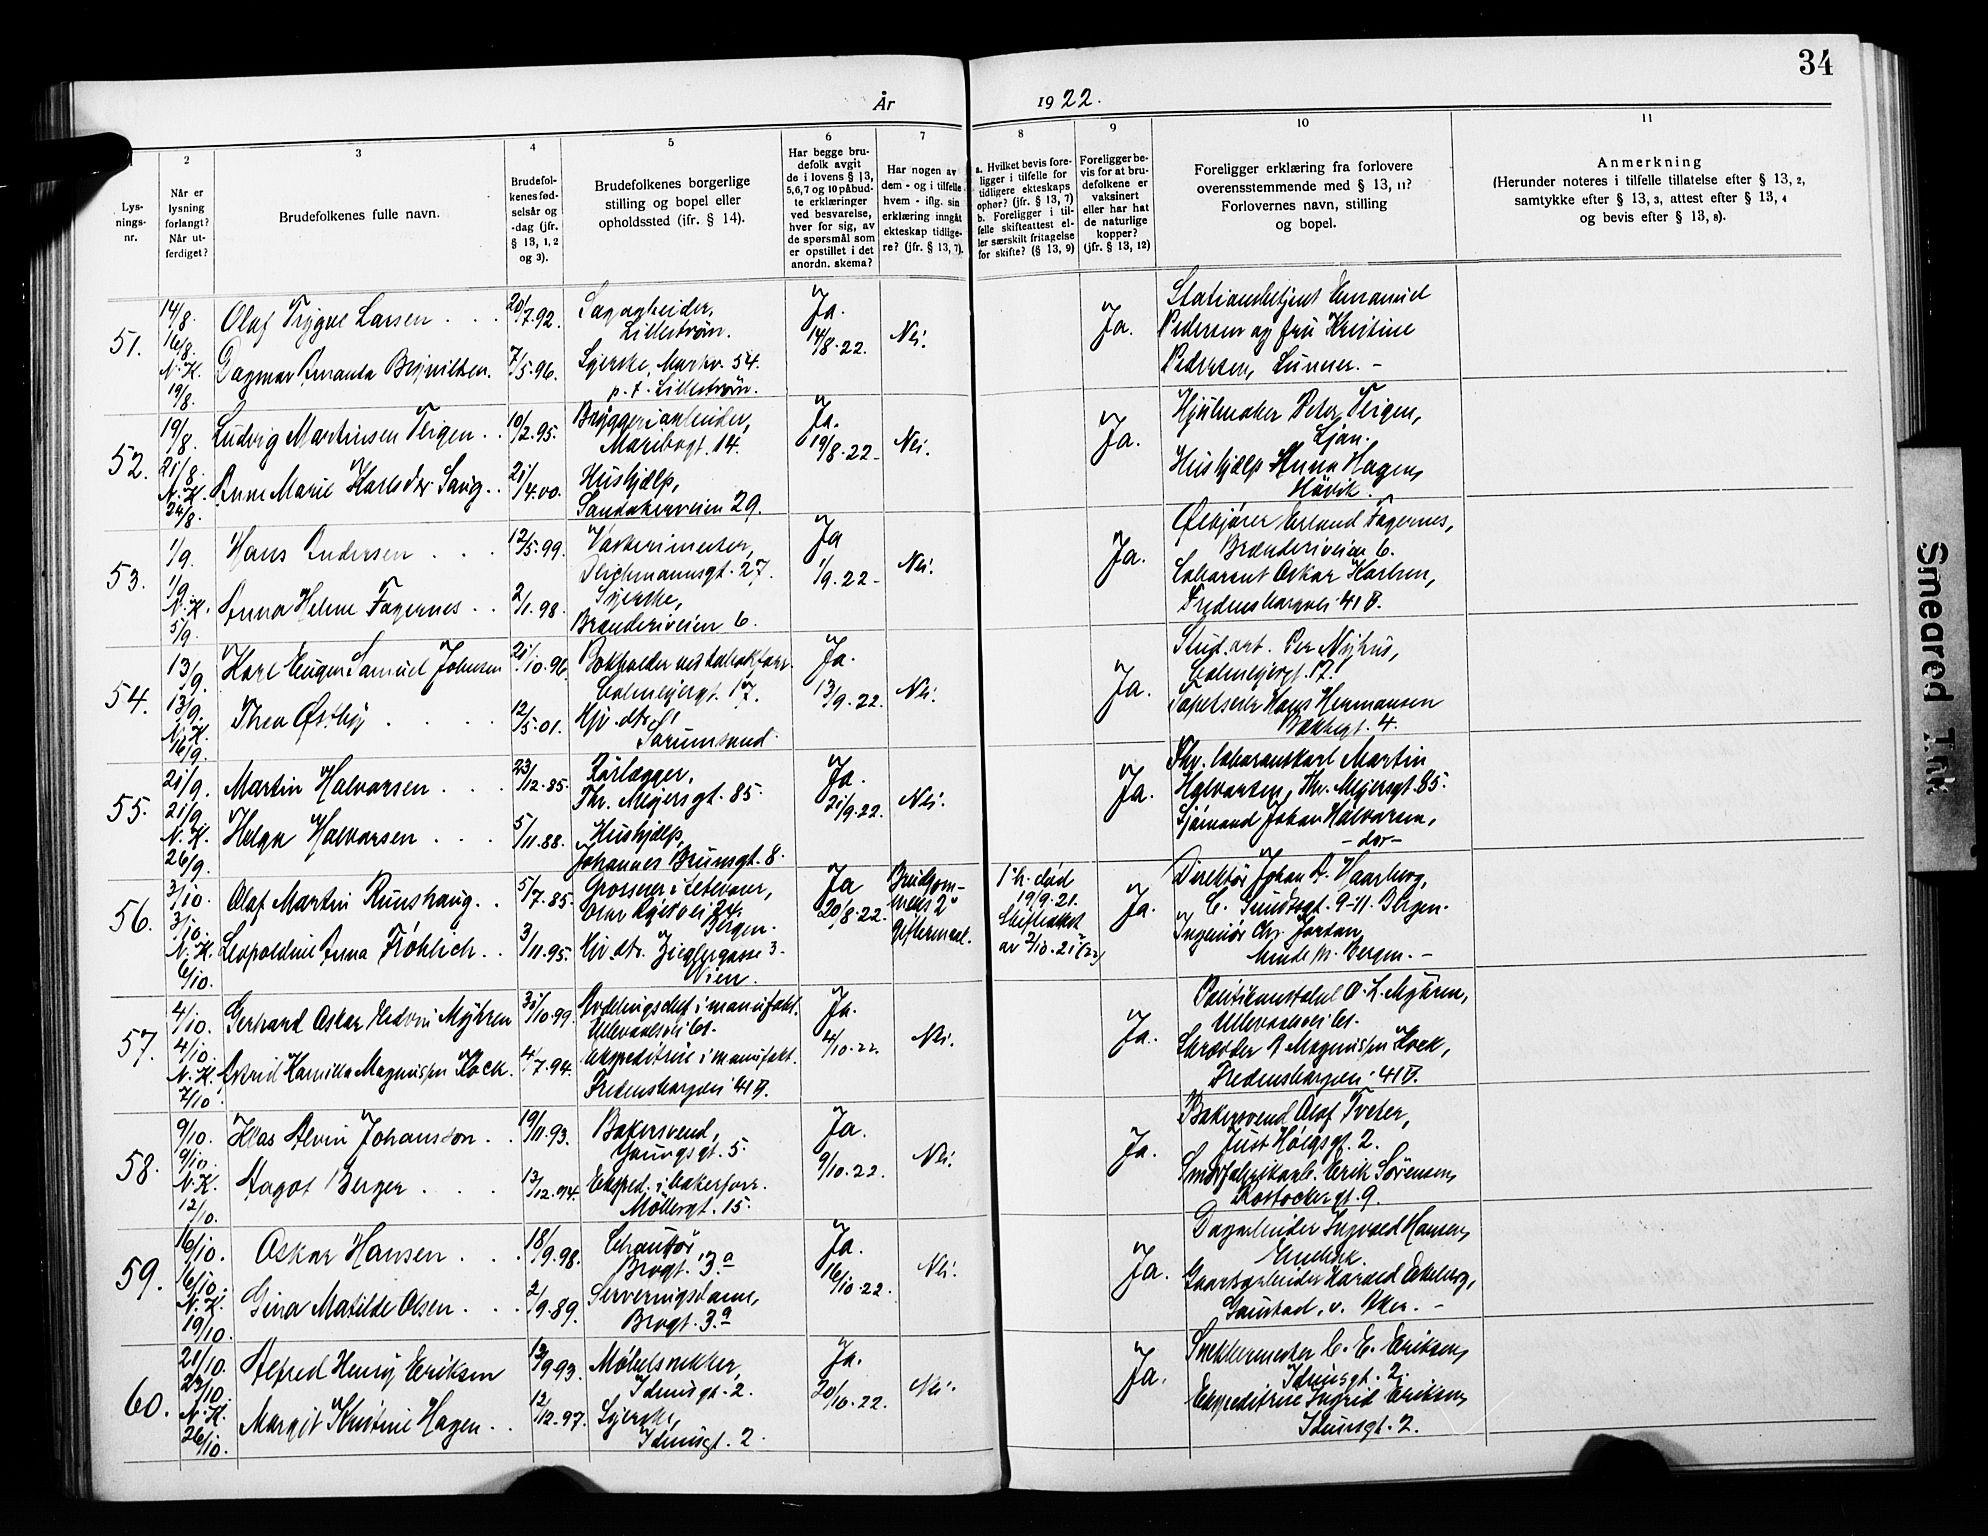 34
År 1922.
1
2
3
4
5
6
7
8
9
10
11
Lys-
nings-
nr.
Når er
lysning
forlangt?
Når ut-
ferdiget?
Brudefolkenes fulle navn.
Brudefol-
kenes fød-
selsår og
-dag (jfr.
§ 13, 1, 2
og 3).
Brudefolkenes borgerlige
stilling og bopel eller
opholdssted (ifr. § 14).
Har begge bru-
defolk avgit
de i lovens § 13,
5,6,7 og 10 påbud-
te erklæringer
ved besvarelse,
hver for sig, av
de spørsmål som
er opstillet i det
anordn. skema?
Har nogen av
dem - og i tilfelle
hvem - iflg. sin
erklæring inngåt
ekteskap tidlige-
re? (jfr. § 13, 7).
a. Hvilket bevis fore-
ligger i tilfelle for
tidligere ekteskaps
ophør? (jfr. § 13, 7)
b. Foreligger i til-
felle skifteattest el-
ler særskilt fritagelse
for skifte? (§ 13, 9)
Foreligger be-
vis for at bru-
defolkene er
vaksinert
eller har hat
de naturlige
kopper?
(jfr. § 13, 12)
Foreligger erklæring fra forlovere
overensstemmende med § 13, 11?
Forlovernes navn, stilling
og bopel.
Anmerkning
(Herunder noteres i tilfelle tillatelse efter § 13, 2,
samtykke efter § 13, 3, attest efter § 13, 4
og bevis efter § 13, 8).
51.
14/8.
16/8.
N.K.
19/8.
Olaf Trygve Larsen . . .
Dagmar Amanda
20/7.92.
7/5.96.
Sagarbeider,
Lillestrøm.
Syerske, Markv. 54.
p.t. Lillestrøm.
Ja.
14/8.22.
Nei.
Ja.
Stationsbetjent Emanuel
Pedersen og fru Kristine
Pedersen, Lunner. –
52.
19/8.
21/8.
N.K.
24/8.
Ludvig Martinsen Teigen . .
Anne Marie Karlsdtr. Saug . .
10/2.95.
21/4.00.
Bryggeriarbeider,
Maribogt. 14.
Hushjælp,
Sandakerveien 29.
Ja.
19/8.22.
Nei.
Ja.
Hjulmaker Peter Teigen,
Ljan.
Hushjælp Anna Hagen,
Høvik.
53.
1/9.
1/9.
N.K.
5/9.
Hans Andersen . . .
Anna Helene Fagernes . .
12/5.99.
2/11.98.
Vaskerimester,
Deichmannsgt. 27.
Syerske,
Brænderiveien 6.
Ja
1/9.22.
Nei.
Ja.
Erland Fagernes,
Brænderiveien 6.
Oskar Karlsen,
Fredensborgvei 41 B.
54.
13/9.
13/9.
N.K.
16/9.
Karl Eugen Samuel Johnsen
Thea Østby . . . .
21/10.96.
12/5.01.
Bokholder
Calmeyergt. 17.
Hjv. dtr.,
Sørumsand.
Ja.
13/9.22.
Nei.
Ja.
Stud. art. Per Nyhus,
Calmeyergt. 17.
Tapetserer Hans Hermansen
Bakkegt. 4.
55.
21/9.
21/9.
N.K.
26/9.
Martin Halvorsen . . .
Helga Halvorsen . . .
23/12.85.
5/11.88.
Rørlægger,
Thv. Meyersgt. 85.
Hushjælp,
Johannes Brunsgt. 8.
Ja.
21/9.22.
Nei.
Ja.
Martin
Halvorsen, Thv. Meyersgt. 85.
Sjømand Johan Halvorsen,
– do –
56.
3/10.
3/10.
N.K.
6/10.
Olaf Martin Runshaug . .
Leopoldine Anna Fröhlich . .
5/7.85.
3/11.95.
Grosserer i
Bergen.
Hjv. dtr. Zieglergasse 3.
Wien.
Ja
20/8.22.
Brudgom-
mens 2det
giftermaal.
1ste h. død
19/9.21.
Skifteattest
av 3/10.21
Ja.
Direktør Johan
C. Sundtsgt. 9-11. Bergen.
Ingeniør Chr. Jordan,
Minde pr. Bergen. –
57.
4/10.
4/10.
N.K.
7/10.
Gerhard Oskar Edvin Myhren
Astrid Kamilla Magnussen Kock.
31/10.99.
4/7.94.
Avdelingschef i manufakt.
Ullevaalsvei 61.
Ekspeditrice i manufakt.
Fredensborgvei 41 B.
Ja.
4/10.22.
Nei.
Ja.
Politikonstabel O. L. Myhren,
Ullevaalsvei 61.
Skrædder A Magnussen Kock,
Fredensborgvei 41 B.
58.
9/10.
9/10.
N.K.
12/10.
Klas Alvin Johansson . .
Aagot Berger . . . .
19/11.93.
13/12.94.
Bakersvend,
Youngsgt. 5.
Eksped. i bakerforr.
Møllergt. 15.
Ja.
9/10.22.
Nei.
Ja.
Bakersvend Olaf Tveter,
Just Høegsgt. 2.
Smørfabrikarb. Erik Sørensen,
Rostockergt. 9.
59.
16/10.
16/10.
N.K.
19/10.
Oskar Hansen . .
Gina Matilde Olsen . . .
18/9.98.
2/9.89.
Chauffør
Brogt. 3.a
Serveringsdame,
Brogt. 3.a
Ja.
16/10.22.
Nei.
Ja.
Dagarbeider Ingvald Hansen,
Enebak.
Gaardsarbeider Harald Ekeberg,
Gaustad, v. Aker. –
60.
21/10.
23/10.
N.K.
26/10.
Alfred Henry Eriksen
Margit Kristine Hagen . .
13/9.93.
12/12.97.
Møbelsnekker,
Idunsgt. 2.
Syerske,
Idunsgt. 2.
Ja.
20/10.22.
Nei.
Ja.
Snekkermester C. E. Eriksen,
Idunsgt. 2.
Ekspeditrice Ingrid Eriksen,
Idunsgt. 2.
Smeared Ink